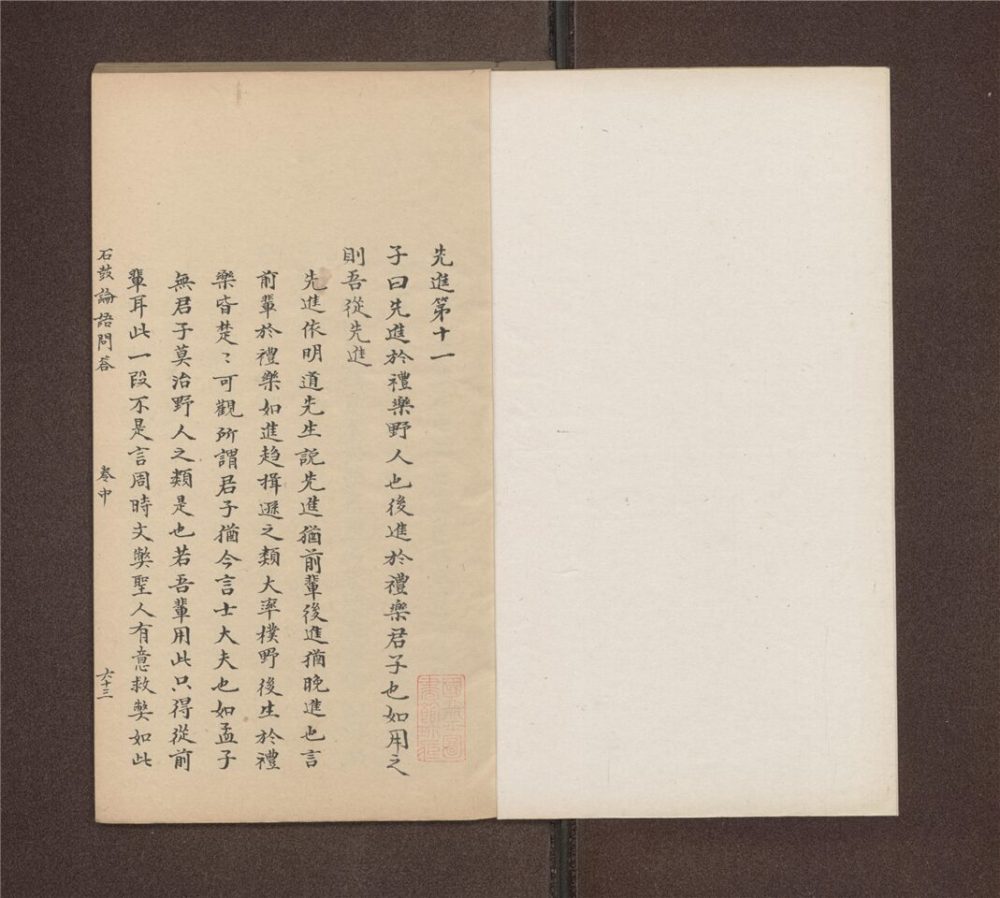 先進第十一
子曰先進於禮樂野人也後進於禮樂君子也如用之
則吾從先進
先進依明道先生説先進猶前輩後進猶晚進也言
前輩於禮樂如進趋揖遜之類大率樸野後生於禮
樂皆楚〻可觀所謂君子猶今言士大夫也如孟子
無君子莫治野人之類是也若吾輩用此只得從前
輩耳此一段不是言周時文獘聖人有意救獘如此
石鼓論語問答
卷中
六十三